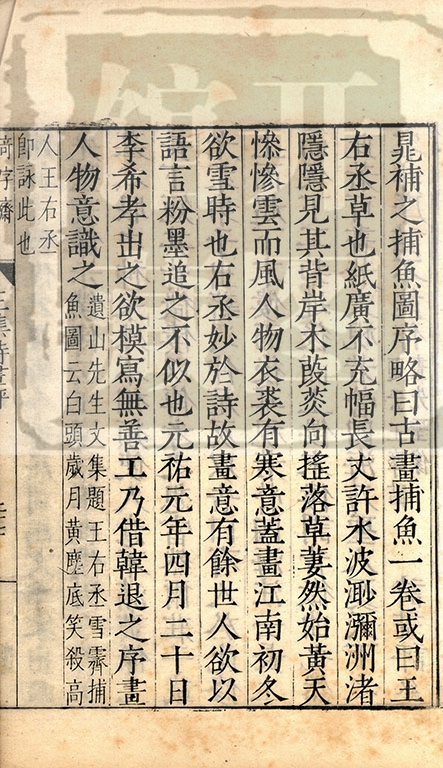 晁補之捕魚圖序略曰古畫捕魚一卷或曰王
右丞草也紙廣不充幅長丈許水波渺瀰洲渚
隱隱見其背岸木葭菼向搖落草萋然始黃天
慘慘雲而風人物衣裘有寒意蓋畫江南初冬
欲雪時也右丞妙於詩故畫意有餘世人欲以
語言粉墨追之不似也元祐元年四月二十日
李希孝出之欲模寫無善工乃借韓退之序畫
人物意識之
遺山先生文集題王右丞雪霽捕
魚圖云白頭歲月黃塵底笑殺高
人王右丞
即詠此也